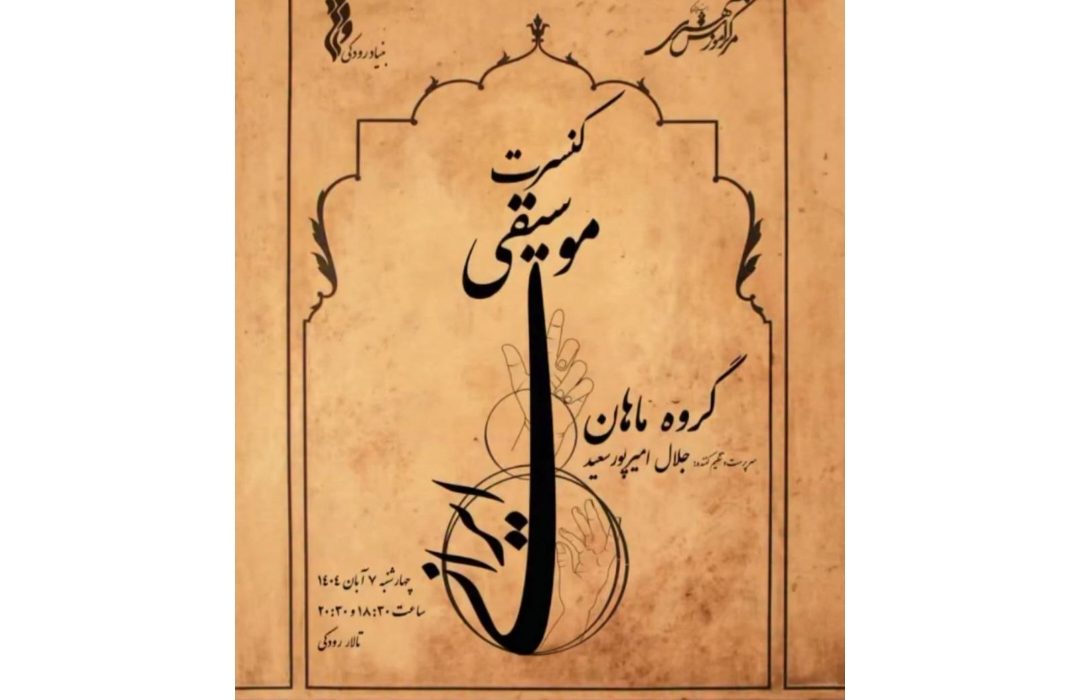 بنیاد رودکی
کنسرت
موسیقی
ایرانی
گروه ماهان
سرپرست و تنظیم کننده: جلال امیرپورسعید
چهارشنبه ۷ آبان ۱۴۰۴
ساعت ۱۸:۳۰ و ۲۰:۳۰
تالار رودکی